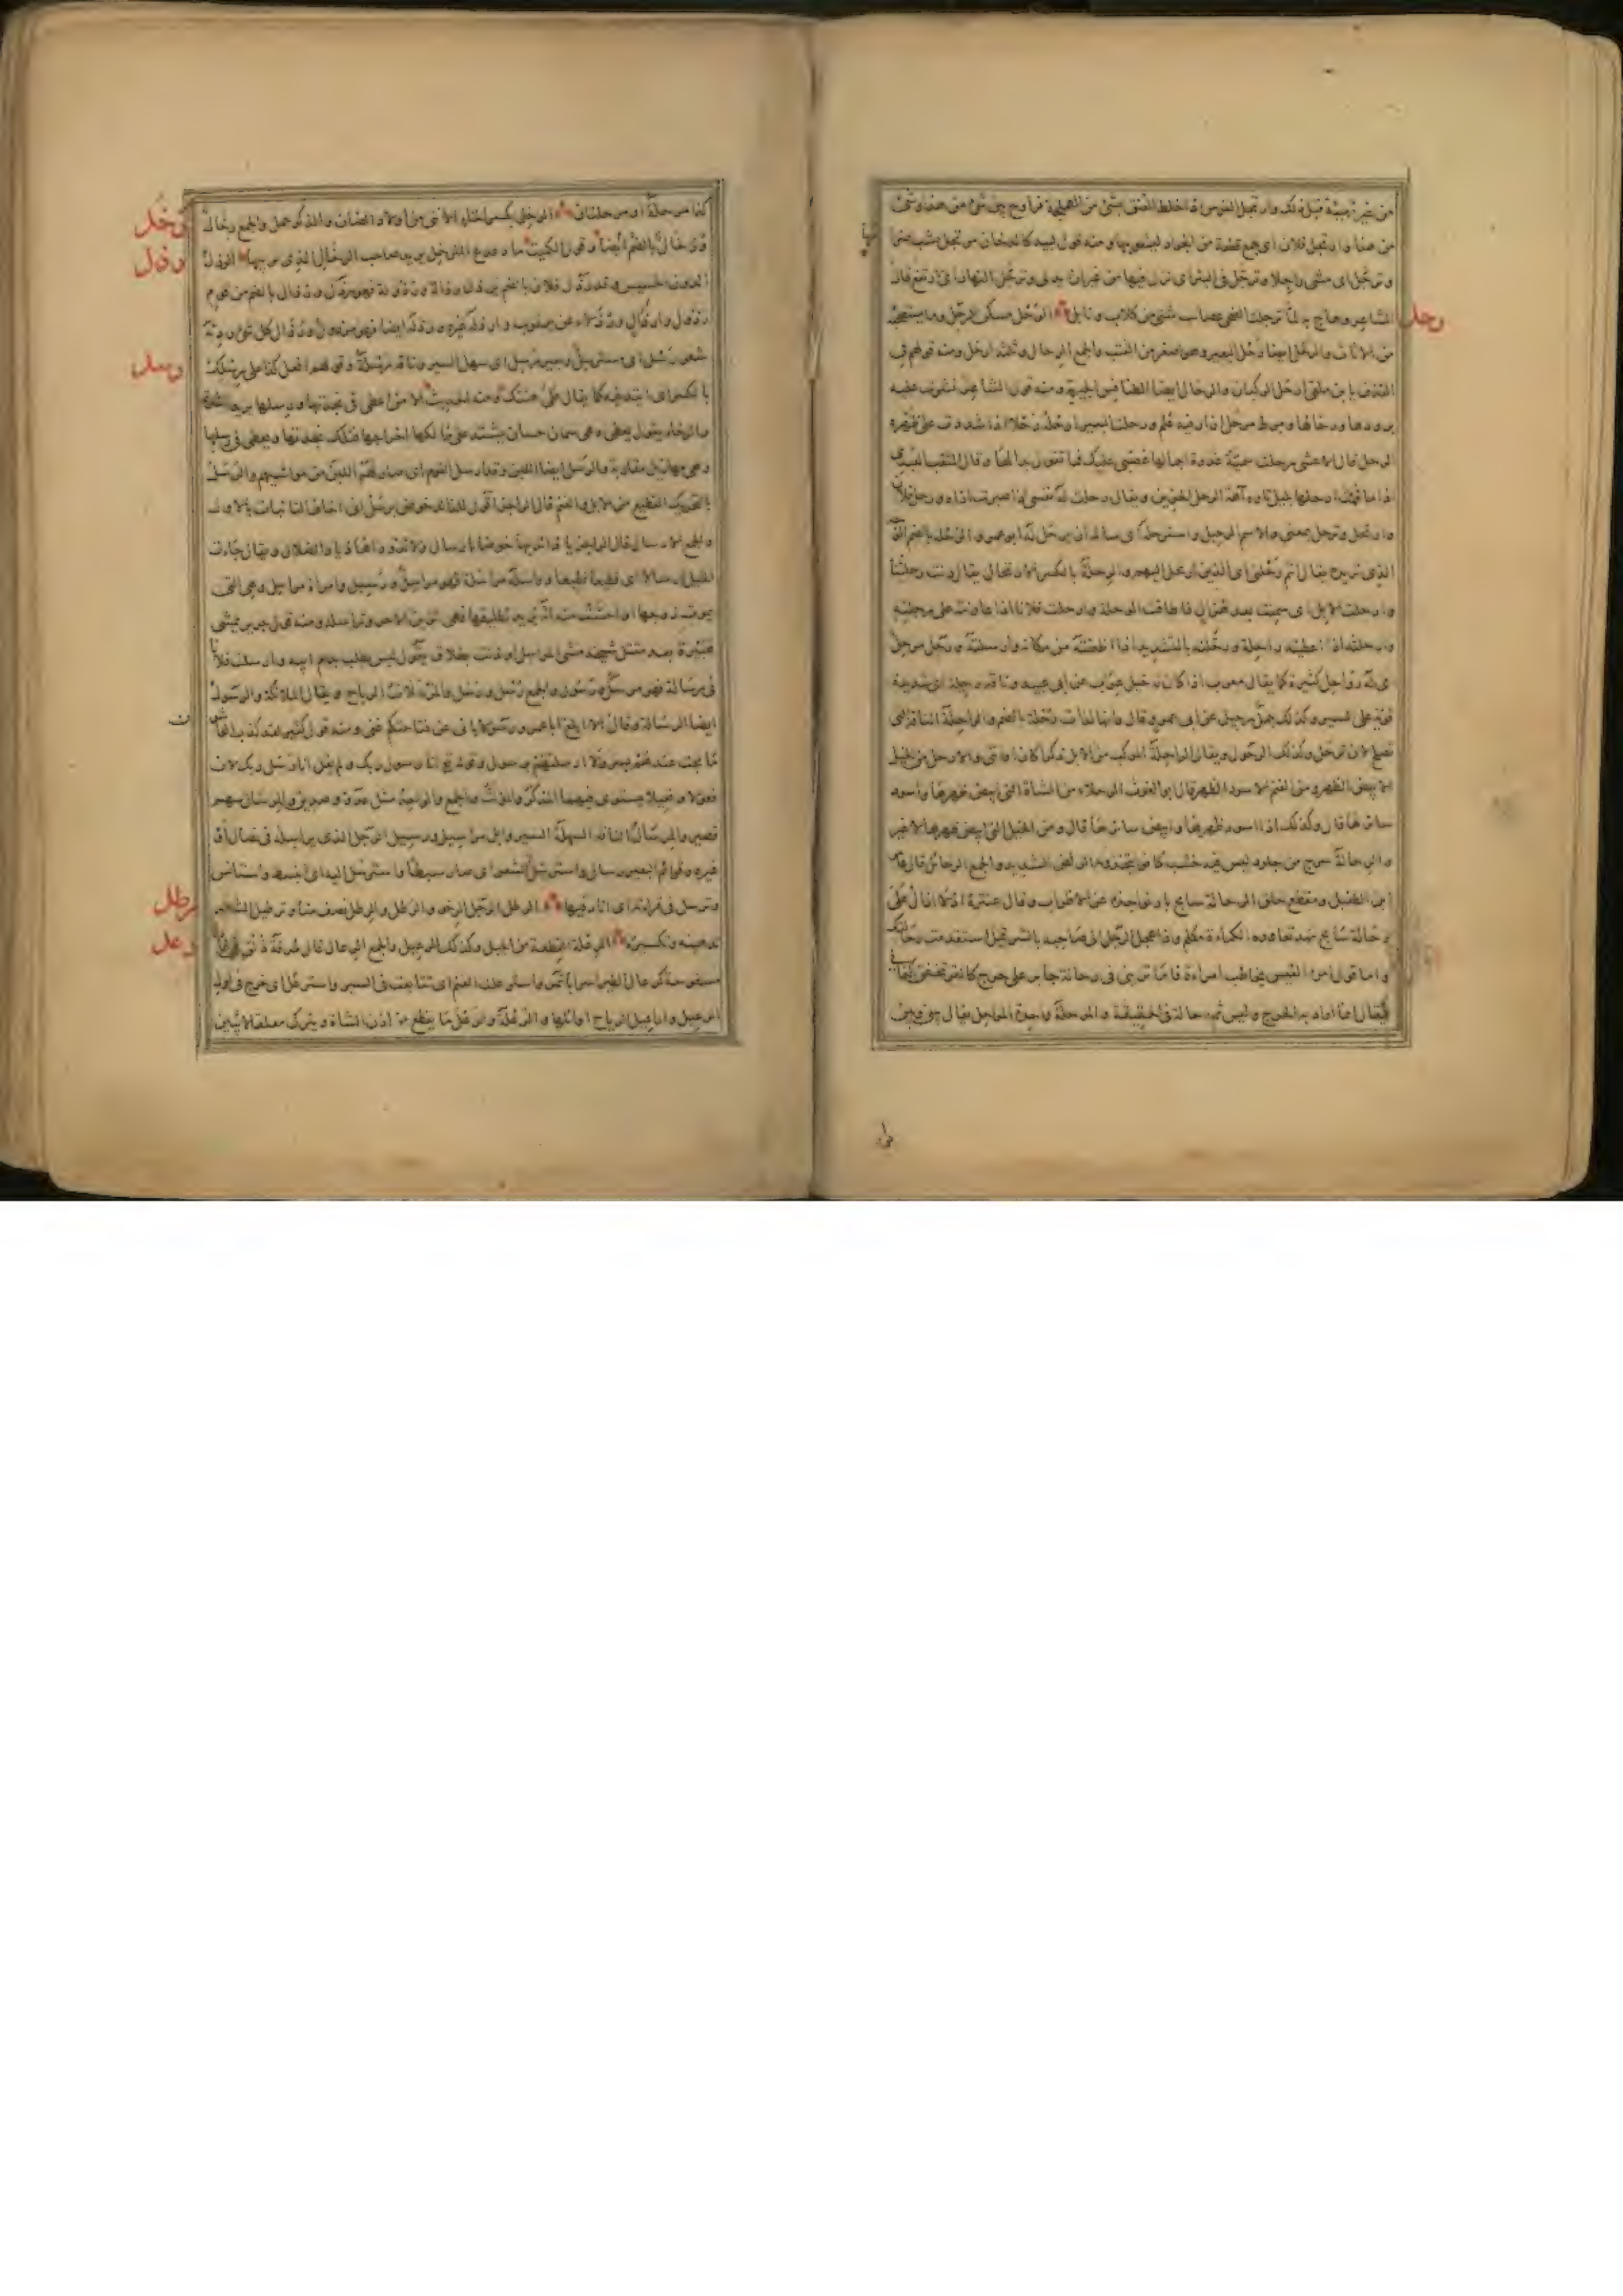 من غير تهيئة قبل ذلك وارتجل الفرس اذا خلط العنق بشئ من الهملجة فراوح بين شئ من هذا وشئ
من هذا وارتجل فلان اى جمع قطعة من الجراد ليشويها ومنه قول لبيد كدخان مرتجل يشب ضرامها
وترجل اى مشى راجلا وترجل فى البئر اى نزل فيها من غير ان يدلى وترجل النهار اى ارتفع قال
الشاعر وهاج به لما ترجلت الضحى عصائب شتى من كلاب ونابل الرحل مسكن الرجل وما يستصحبه
رحل
من الاثاث والرحل ايضا رحل البعير وهو اصغر من القتب والجمع الرحال وثلثة ارحل ومنه قولهم فى
القذف يا بن ملقى ارحل الركبان والرحال ايضا الطنافس الحيرية ومنه قول الشاعر نشرت عليه
برودها ورحالها ومرط مرحل ازار فيه علم ورحلت البعير ارحله رحلا اذا شددت على ظهره
الرحل قال الاعشى رحلت سمية غدوة اجمالها غضبى عليك فما تقول بدا لها وقال المثقب العبدى
اذا ما قمت ارحلها بليل تاوه آهة الرجل الحزين ويقال رحلت له نفسى اذا صبرت على اذاه ورحل فلان
وارتحل وترحل بمعنى والاسم الرحيل واسترحله اى ساله ان يرحل له ابو عمرو الرحلة بالضم الوجه
الذى تريده يقال انتم رحلتى اى الذين ارتحل اليهم والرحلة بالكسر الارتحال يقال دنت رحلتنا
وارحلت الابل اى سمنت بعد هزال فاطاقت الرحلة وارحلت فلانا اذا عاونته على رحلته
وارحلته اذا اعطيته راحلة ورحلته بالتشديد اذا اظعنته من مكانه وارسلته ورجل مرحل
اى له رواحل كثيرة كما يقال معرب اذا كان له خيل عراب عن ابى عبيد وناقة رحيلة اى شديدة
قوية على السير وكذلك جمل رحيل عن ابى عمرو قال وانها لذات رحلة بالضم والراحلة الناقة التى
تصلح لان ترحل وكذلك الرحول ويقال الراحلة المركب من الابل ذكرا كان او انثى والارحل من الخيل
الابيض الظهر ومن الغنم الاسود الظهر قال ابو الغوث الرحلاء من الشاة التى ابيض ظهرها واسود
سائرها قال وكذلك اذا اسود ظهرها وابيض سائرها قال ومن الخيل التى ابيض ظهرها لا غير
والرحالة سرج من جلود ليس فيه خشب كانوا يتخذونه للركض الشديد والجمع الرحائل قال عامر
ابن الطفيل ومقطع حلق الرحالة سابح باد نواجذه عن الاظراب وقال عنترة اذ لا ازال على
رحالة سابح نهد تعاوره الكماة مكلم واذا عجل الرجل الى صاحبه بالشر قيل استقدمت رحالتك
واما قول امرء القيس يخاطب امراءة فاما ترينى فى رحالة جابر على حرج كالقر تخفق اكفانى
فيقال انما اراد به الحرج وليس ثم رحالة فى الحقيقة والمرحلة واحدة المراحل يقال بينى وبين
كذا مرحلة او مرحلتان الرخل بكسر الخاء الانثى من اولاد الضان والذكر حمل والجمع رخال
رخل
ورخال بالضم ايضا وقول الكميت الرذل
رذل
الدون الخسيس وقد رذل فلان بالضم يرذل رذالة ورذولة فهو رذل ورذال بالضم من قوم
رذول وارذال ورذلاء عن يعقوب وارذله غيره ورذله ايضا فهو مرذول ورذال كل شئ رديه
شعر رسل اى مسترسل وبعير رسل اى سهل السير وناقة رسلة وقولهم افعل كذا على رسلك
رسل
بالكسر اى اتئد فيه كما يقال على هينتك ومنه الحديث الا من اعطى فى نجدتها ورسلها يريد الشدة
والرخاء يقول يعطى وهى سمان حسان يشتد على مالكها اخراجها فتلك نجدتها ويعطى فى رسلها
وهى مهازيل مقاربة والرسل ايضا اللبن وقد ارسل القوم اى صار لهم اللبن من مواشيهم والرسل
بالتحريك القطيع من الابل والغنم قال الراجز اقول للذائد خوض برسل انى اخاف النائبات بالاول
والجمع الارسال قال الراجز يا ذائديها خوضا بارسال ولا تذوداها ذياد الضلال ويقال جاءت
الخيل ارسالا اى قطيعا قطيعا وراسله مراسلة فهو مراسل ورسيل وامراة مراسل وهى التى
يموت زوجها او احست منه انه يريد تطليقها فهى تزين لاخر وتراسله ومنه قول جرير يمشى
هبيرة بعد مقتل شيخه مشى المراسل اوذنت بطلاق يقول ليس يطلب بدم ابيه وارسلت فلانا
فى رسالة فهو مرسل ورسول والجمع رسل ورسل والمرسلات الرياح ويقال الملائكة والرسول
ايضا الرسالة وقال الا ابلغ ابا عمرو رسولا بانى عن فتاحتكم غنى ومنه قول كثير لقد كذب الواشون
ما بحت عندهم بسر ولا ارسلتهم برسول وقوله تع انا رسول ربك ولم يقل انا رسل ربك لان
فعولا وفعيلا يستوى فيهما المذكر والمؤنث والجمع والواحد مثل عدو وصديق والمرسال سهم
قصير والمرسال الناقة السهلة السير وابل مراسيل ورسيل الرجل الذى يراسله فى نضال او
غيره وقوائم البعير رسال واسترسل الشعر اى صار سبطا واسترسل اليه اى انبسط واستانس
وترسل فى قراءته اى اتاد فيها الرطل الرجل الرخو والرطل والرطل نصف منا وترطيل الشعر
رطل
تدهينه وتكسيره الرعلة القطعة من الخيل وكذلك الرعيل والجمع الرعال قال طرفة ذلق فى غارة
رعل
مسفوحة كرعال الطير اسرابا تمر واسترعلت الغنم اى تتابعت فى السير واسترعل اى خرج فى اول
الرعيل واراعيل الرياح اوائلها والرعلة والرعل ما يقطع من اذن الشاة ويترك معلقا لا يبين